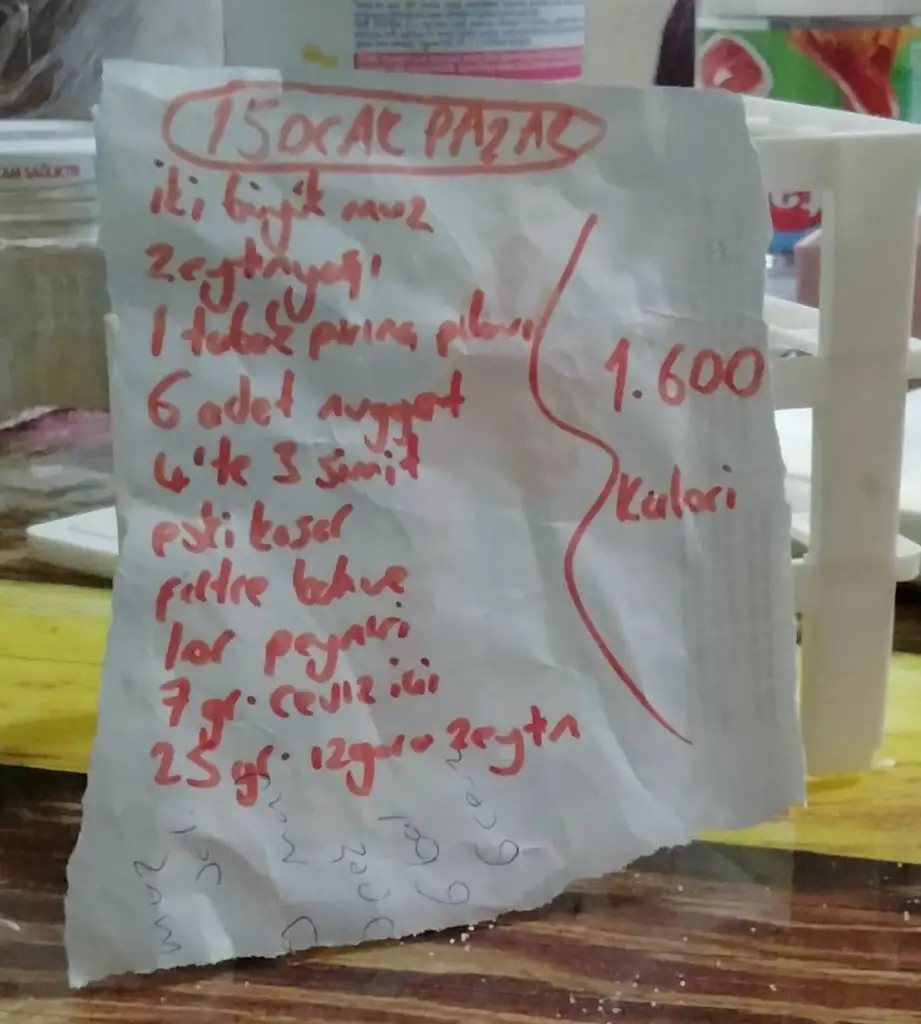 15 OCAK PAZAR
iki büyük muz
zeytinyağı
1 tabak pirinç pilavı
6 adet nugget
4'te 3 simit
eski kaşar
filtre kahve
lor peyniri
7 gr. ceviz içi
25 gr. ızgara zeytin
1.600
Kalori
muz
CAM SAĞLIKTIR